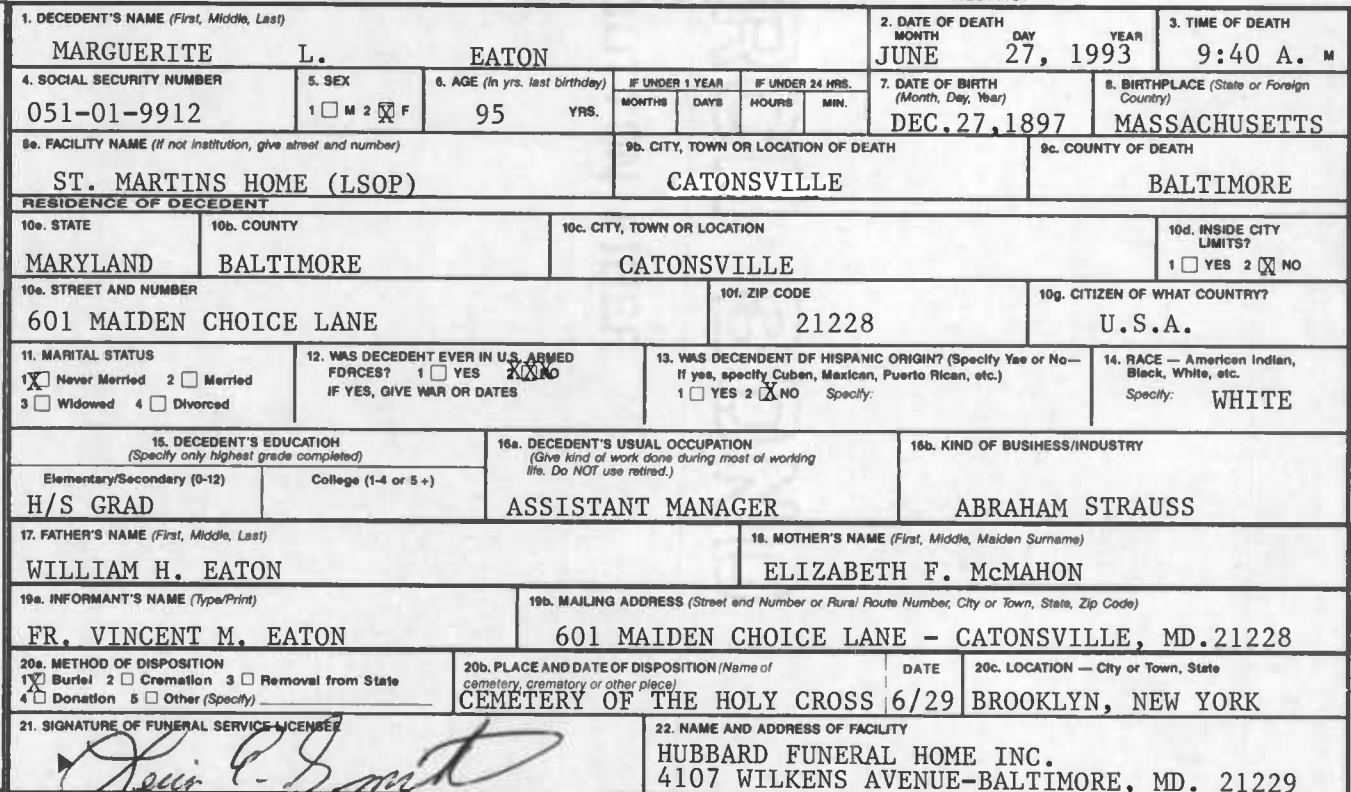 1. DECEDENT'S NAME (First, Middle, Last)
MARGUERITE L. EATON
2. DATE OF DEATH
MONTH DAY YEAR
JUNE 27, 1993
3. TIME OF DEATH
9:40 A. M
4. SOCIAL SECURITY NUMBER
051-01-9912
5. SEX
1 ☐ M 2 ☒ F
6. AGE (In yrs. last birthday)
95 YRS.
IF UNDER 1 YEAR
MONTHS DAYS
IF UNDER 24 HRS.
HOURS MIN.
7. DATE OF BIRTH
(Month, Day, Year)
DEC.27,1897
8. BIRTHPLACE (State or Foreign
Country)
MASSACHUSETTS
9a. FACILITY NAME (If not institution, give street and number)
ST. MARTINS HOME (LSOP)
9b. CITY, TOWN OR LOCATION OF DEATH
CATONSVILLE
9c. COUNTY OF DEATH
BALTIMORE
RESIDENCE OF DECEDENT
10a. STATE
MARYLAND
10b. COUNTY
BALTIMORE
10c. CITY, TOWN OR LOCATION
CATONSVILLE
10d. INSIDE CITY
LIMITS?
1 ☐ YES 2 ☒ NO
10e. STREET AND NUMBER
601 MAIDEN CHOICE LANE
10f. ZIP CODE
21228
10g. CITIZEN OF WHAT COUNTRY?
U.S.A.
11. MARITAL STATUS
1 ☒ Never Married 2 ☐ Married
3 ☐ Widowed 4 ☐ Divorced
12. WAS DECEDENT EVER IN U.S. ARMED
FORCES? 1 ☐ YES 2 ☒ NO
IF YES, GIVE WAR OR DATES
13. WAS DECENDENT OF HISPANIC ORIGIN? (Specify Yes or No—
If yes, specify Cuban, Mexican, Puerto Rican, etc.)
1 ☐ YES 2 ☒ NO Specify:
14. RACE — American Indian,
Black, White, etc.
Specify: WHITE
15. DECEDENT'S EDUCATION
(Specify only highest grade completed)
Elementary/Secondary (0-12) College (1-4 or 5+)
H/S GRAD
16a. DECEDENT'S USUAL OCCUPATION
(Give kind of work done during most of working
life. Do NOT use retired.)
ASSISTANT MANAGER
16b. KIND OF BUSINESS/INDUSTRY
ABRAHAM STRAUSS
17. FATHER'S NAME (First, Middle, Last)
WILLIAM H. EATON
18. MOTHER'S NAME (First, Middle, Maiden Surname)
ELIZABETH F. McMAHON
19a. INFORMANT'S NAME (Type/Print)
FR. VINCENT M. EATON
19b. MAILING ADDRESS (Street and Number or Rural Route Number, City or Town, State, Zip Code)
601 MAIDEN CHOICE LANE - CATONSVILLE, MD.21228
20a. METHOD OF DISPOSITION
1 ☒ Burial 2 ☐ Cremation 3 ☐ Removal from State
4 ☐ Donation 5 ☐ Other (Specify)
20b. PLACE AND DATE OF DISPOSITION (Name of
cemetery, crematory or other place)
CEMETERY OF THE HOLY CROSS
DATE
6/29
20c. LOCATION — City or Town, State
BROOKLYN, NEW YORK
21. SIGNATURE OF FUNERAL SERVICE LICENSEE
22. NAME AND ADDRESS OF FACILITY
HUBBARD FUNERAL HOME INC.
4107 WILKENS AVENUE-BALTIMORE, MD. 21229